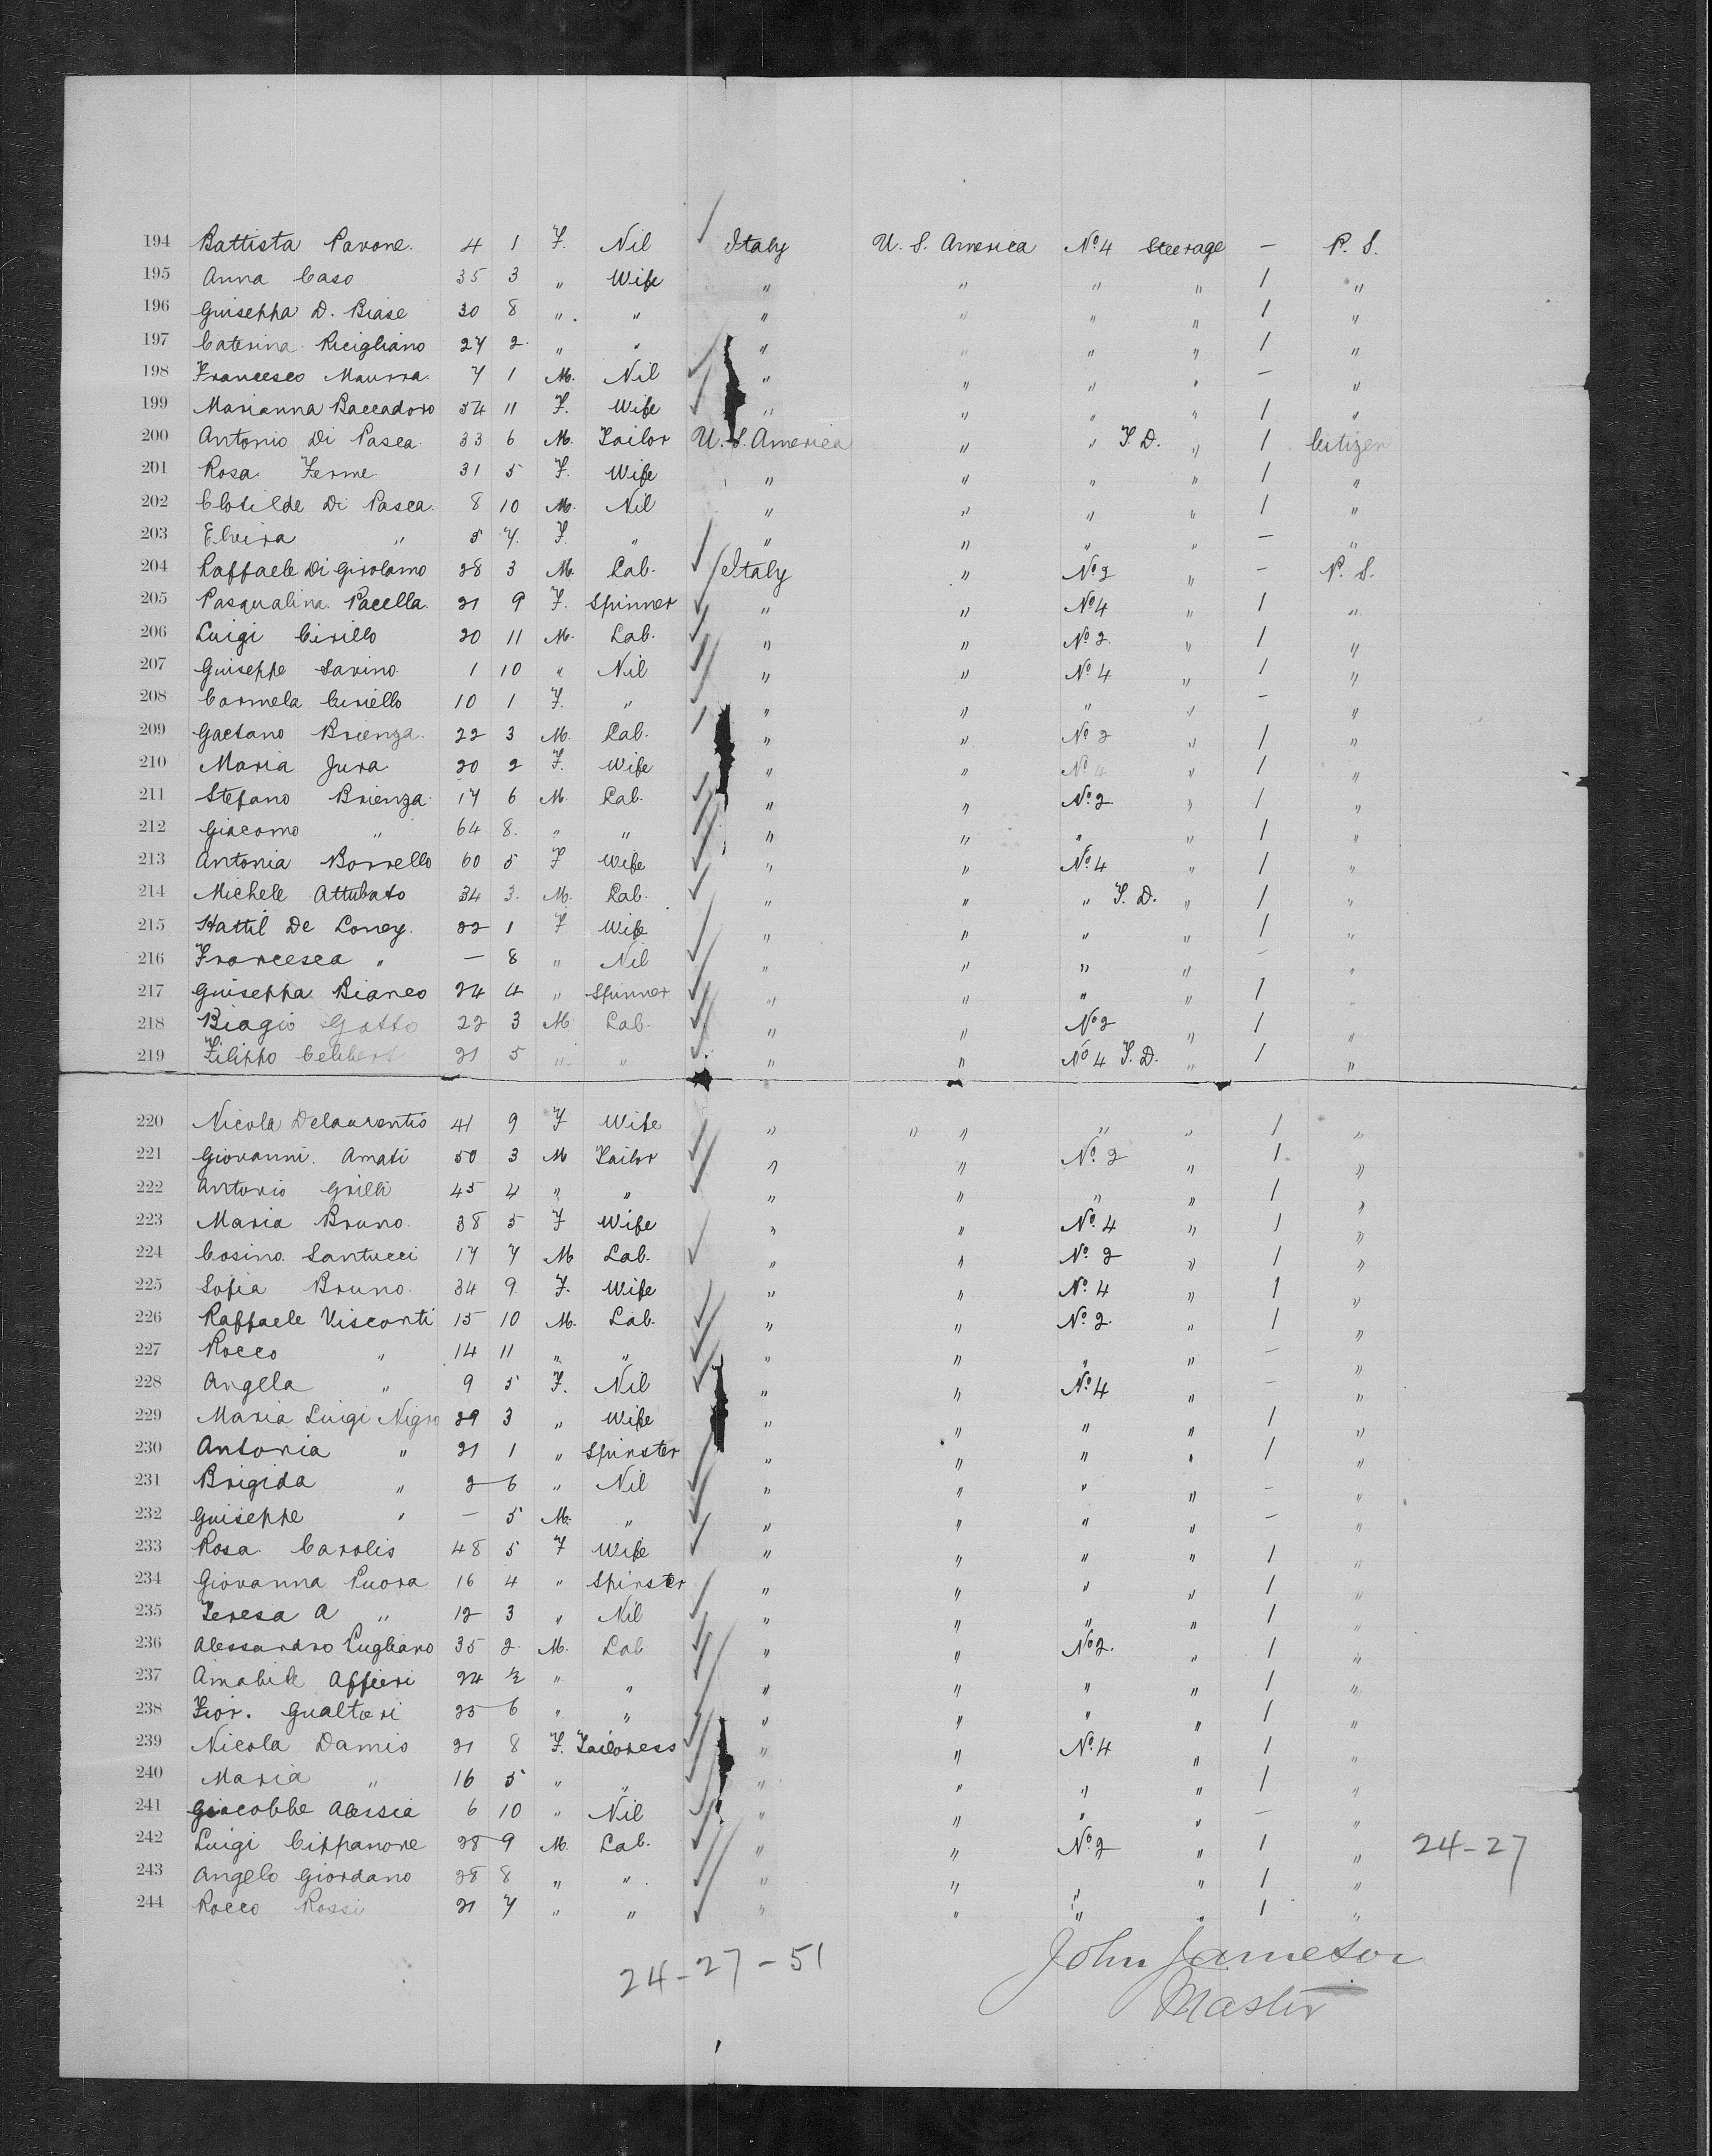 194 Battista Pavone. 4 1 F. Nil Italy U. S. America No. 4 Steerage — P. S.
195 Anna Caso 35 3 " Wife " " " " 1 "
196 Guiseppa D. Biase 30 8 " " " " " " 1 "
197 Caterina Ricigliano 27 2 " " " " " " 1 "
198 Francesco Maurra. 7 1 M. Nil " " " " — "
199 Marianna Baccadoro 54 11 F. Wife " " " " 1 "
200 Antonio Di Pasca. 33 6 M. Tailor U. S. America " " T. D. " 1 Citizen
201 Rosa Ferme 31 5 F. Wife " " " " 1 "
202 Clotilde Di Pasca. 8 10 M. Nil " " " " 1 "
203 Elvira " 5 7. F. " " " " " — "
204 Raffaele Di Girolamo 28 3 M. Lab. Italy " No. 2 " — P. S.
205 Pasqualina Pacella. 21 9 F. Spinner " " No. 4 " 1 "
206 Luigi Cirillo 20 11 M. Lab. " " No. 2. " 1 "
207 Guiseppe Savino 1 10 " Nil " " No. 4 " 1 "
208 Carmela Ciriello 10 1 F. " " " " " — "
209 Gaetano Brienza. 22 3 M. Lab. " " No. 2 " 1 "
210 Maria Jura 20 2 F. Wife " " No. 4 " 1 "
211 Stefano Brienza 17 6 M. Lab. " " No. 2. " 1 "
212 Giacomo " 64 8. " " " " " " 1 "
213 Antonia Borrello 60 5 F Wife " " No. 4 " 1 "
214 Michele Attubato 34 3. M. Lab. " " " T. D. " 1 "
215 Hattil De Loney. 22 1 F Wife " " " " 1 "
216 Francesca " — 8 " Nil " " " " — "
217 Guiseppa Bianco 24 4 " Spinner " " " " 1 "
218 Biagio Gatto 22 3 M Lab. " " No. 2 " 1 "
219 Filippo 21 5 " " " " No. 4 T. D. " 1 "
220 Nicola Delaurentis 41 9 F Wife " " " " " 1 "
221 Giovanni. Amati 50 3 M Tailor " " No. 2 " 1 "
222 Antonio Grilli 45 4 " " " " " " 1 "
223 Maria Bruno. 38 5 F Wife " " No. 4 " 1 "
224 Cosino Santucci 17 7 M Lab. " " No. 2 " 1 "
225 Sofia Bruno. 34 9 F. Wife " " No. 4 " 1 "
226 Raffaele Visconti 15 10 M. Lab. " " No. 2. " 1 "
227 Rocco " 14 11 " " " " " " — "
228 Angela " 9 5 F. Nil " " No. 4 " — "
229 Maria Luigi Nigro 29 3 " Wife " " " " 1 "
230 Antonia " 21 1 " Spinster " " " " 1 "
231 Brigida " 2 6 " Nil " " " " — "
232 Guiseppe " — 5 M. " " " " " — "
233 Rosa Carolis 48 5 F Wife " " " " 1 "
234 Giovanna Puora 16 4 " Spinster " " " " 1 "
235 Teresa A " 12 3 " Nil " " " " 1 "
236 Alessandro Pugliano 35 2. M. Lab " " No. 2. " 1 "
237 Amabile Affieri 24 ½ " " " " " " 1 "
238 Fior. Gualtieri 25 6 " " " " " " 1 "
239 Nicola Damio 21 8 F. Tailoress " " No. 4 " 1 "
240 Maria " 16 5 " " " " " " 1 "
241 Giacobbe Alessia 6 10 " Nil " " " " — "
242 Luigi Cippanone 28 9 M. Lab. " " No. 2 " 1 " 24-27
243 Angelo Giordano 28 8 " " " " " " 1 "
244 Rocco Rossi 21 7 " " " " " " 1 "
24-27-51
John Jameson
Master